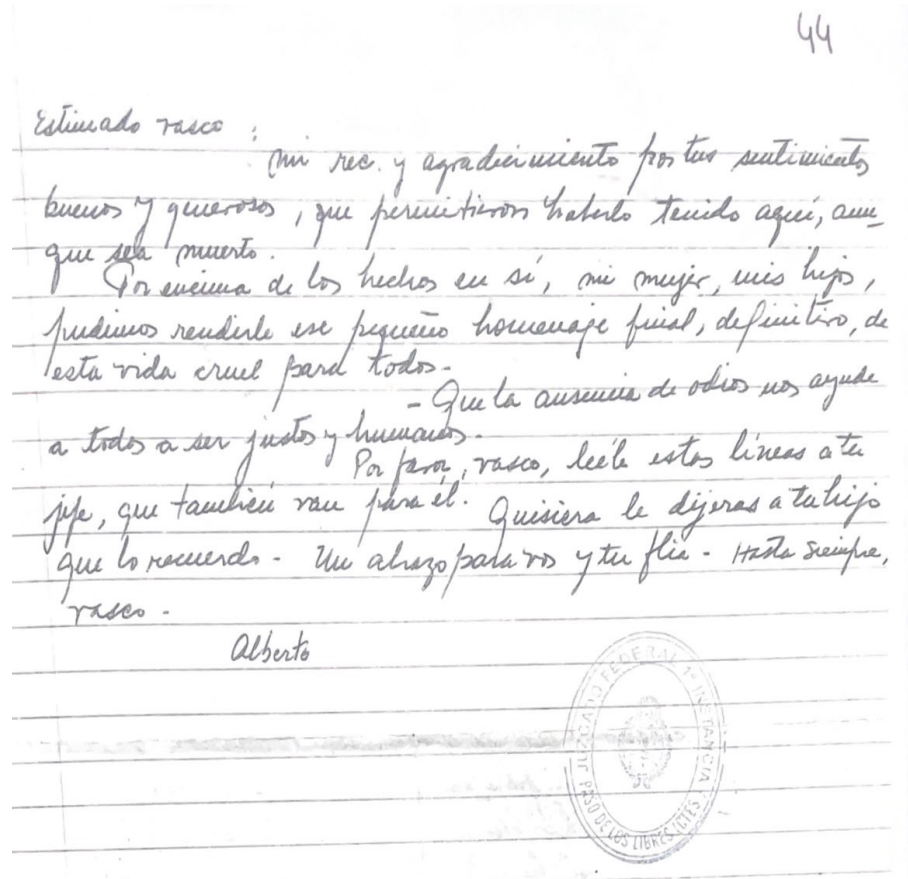 44
Estimado vasco :
mi rec. y agradecimiento por tus sentimientos
buenos y generosos, que permitieron haberlo tenido aquí, aun-
que sea muerto.
Por encima de los hechos en sí, mi mujer, mis hijos,
pudimos rendirle ese pequeño homenaje final, definitivo, de
esta vida cruel para todos.-
- Que la ausencia de odios nos ayude
a todos a ser justos y humanos.-
Por favor, vasco, leéle estas líneas a tu
jefe, que también van para él. Quisiera le dijeras a tu hijo
que lo recuerdo - Un abrazo para vos y tu flia - Hasta siempre,
vasco -
Alberto
JUZGADO FEDERAL 1ª INSTANCIA
PASO DE LOS LIBRES (CTES.)